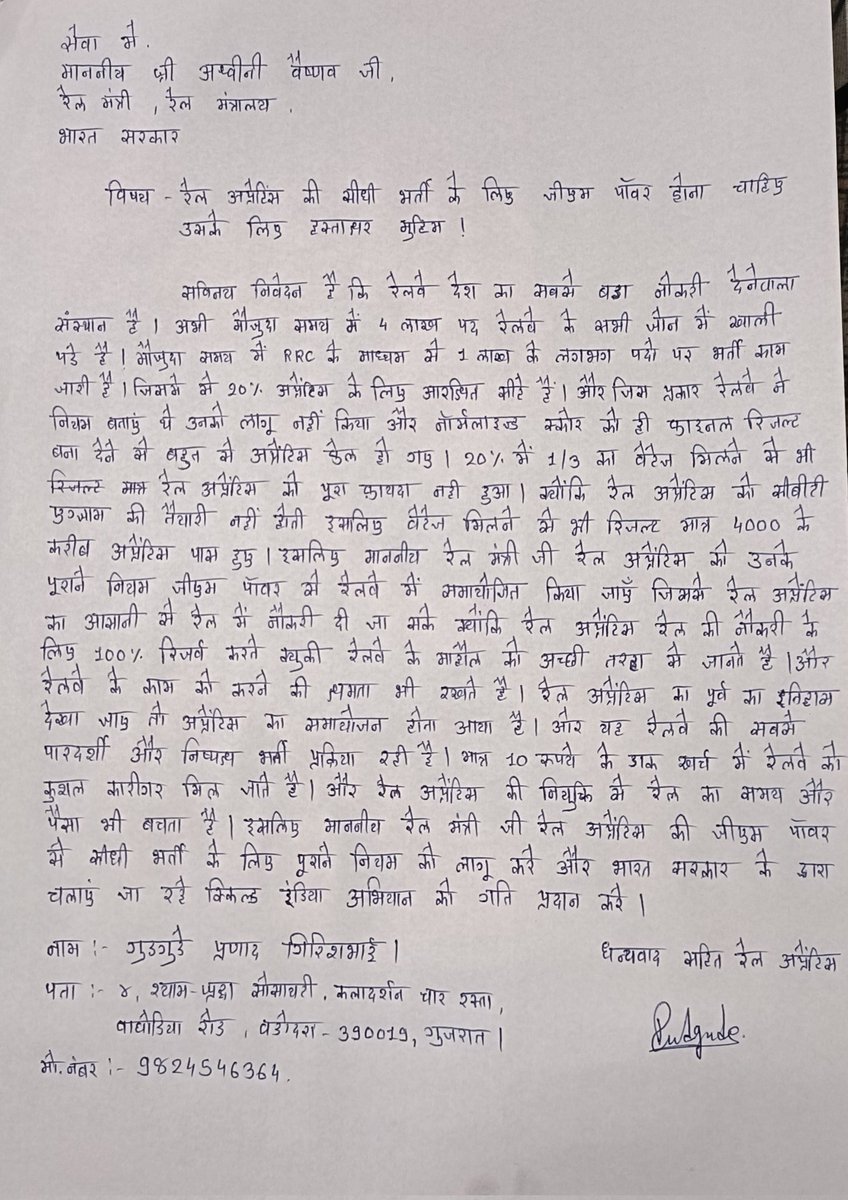 सेवा मे.
माननीय श्री अश्वीनी वैष्णव जी,
रेल मंत्री, रेल मंत्रालय.
भारत सरकार
विषय - रेल अप्रेंटिस की सीधी भर्ती के लिए जीएम पॉवर होना चाहिए
उसके लिए हस्ताक्षर मुहिम !
सविनय निवेदन है कि रेलवे देश का सबसे बडा नौकरी देनेवाला
संस्थान है। अभी मौजुदा समय में 4 लाख पद रेलवे के सभी जोन में खाली
पडे है। मौजुदा समय में RRC के माध्यम से 1 लाख के लगभग पदो पर भर्ती काम
जारी है। जिसके मे 20% अप्रेंटिस के लिए आरक्षित कीहे हैं। और जिस प्रकार रेलवे ने
नियम बताएं थे उनको लागू नहीं किया और नॉर्मलाइज्ड स्कोर को ही फाइनल रिजल्ट
बना देने से बहुत से अप्रेंटिस फेल हो गए। 20% में 1/3 का वेटेज मिलने से भी
रिजल्ट मात्र रेल अप्रेंटिस को पूरा फ़ायदा नही हुआ। क्योंकि रेल अप्रेंटिस को सीबीटी
एग्जाम की तैयारी नहीं होती इसलिए वेटेज मिलने से भी रिजल्ट मात्र 4000 के
करीब अप्रेंटिस पास हुए। इसलिए माननीय रेल मंत्री जी रेल अप्रेंटिस को उनके
पूराने नियम जीएम पॉवर से रेलवे में समायोजित किया जाएँ जिसमे रेल अप्रेंटिस
का आसानी से रेल में नौकरी दी जा सके क्योंकि रेल अप्रेंटिस रेल की नौकरी के
लिए 100% रिजर्व करते क्युकी रेलवे के माहौल को अच्छी तरहा से जानते है। और
रेलवे के काम को करने की क्षमता भी रखते है। रेल अप्रेंटिस का पूर्व का इतिहास
देखा जाए तो अप्रेंटिस का समायोजन होता आया है। और यह रेलवे की सबसे
पारदर्शी और निष्पक्ष भर्ती प्रक्रिया रही है। मात्र 10 रूपये के डाक खर्च में रेलवे को
कुशल कारीगर मिल जाते है। और रेल अप्रेंटिस की नियुक्ति से रेल का समय और
पैसा भी बचता है। इसलिए माननीय रेल मंत्री जी रेल अप्रेंटिस की जीएम पॉवर
से सीधी भर्ती के लिए पूराने नियम को लागू करे और भारत सरकार के द्वारा
चलाएं जा रहे स्किल्ड इंडिया अभियान को गति प्रदान करे।
नाम :- गुडगुडे प्रणाद गिरिशभाई।
धन्यवाद सहित रेल अप्रेंटिस
पता :- ४, श्याम-श्रद्धा सोसायटी, कलादर्शन चार रस्ता,
वाघोडिया रोड, वडोदरा - 390019, गुजरात।
मो. नंबर :- 9824546364.